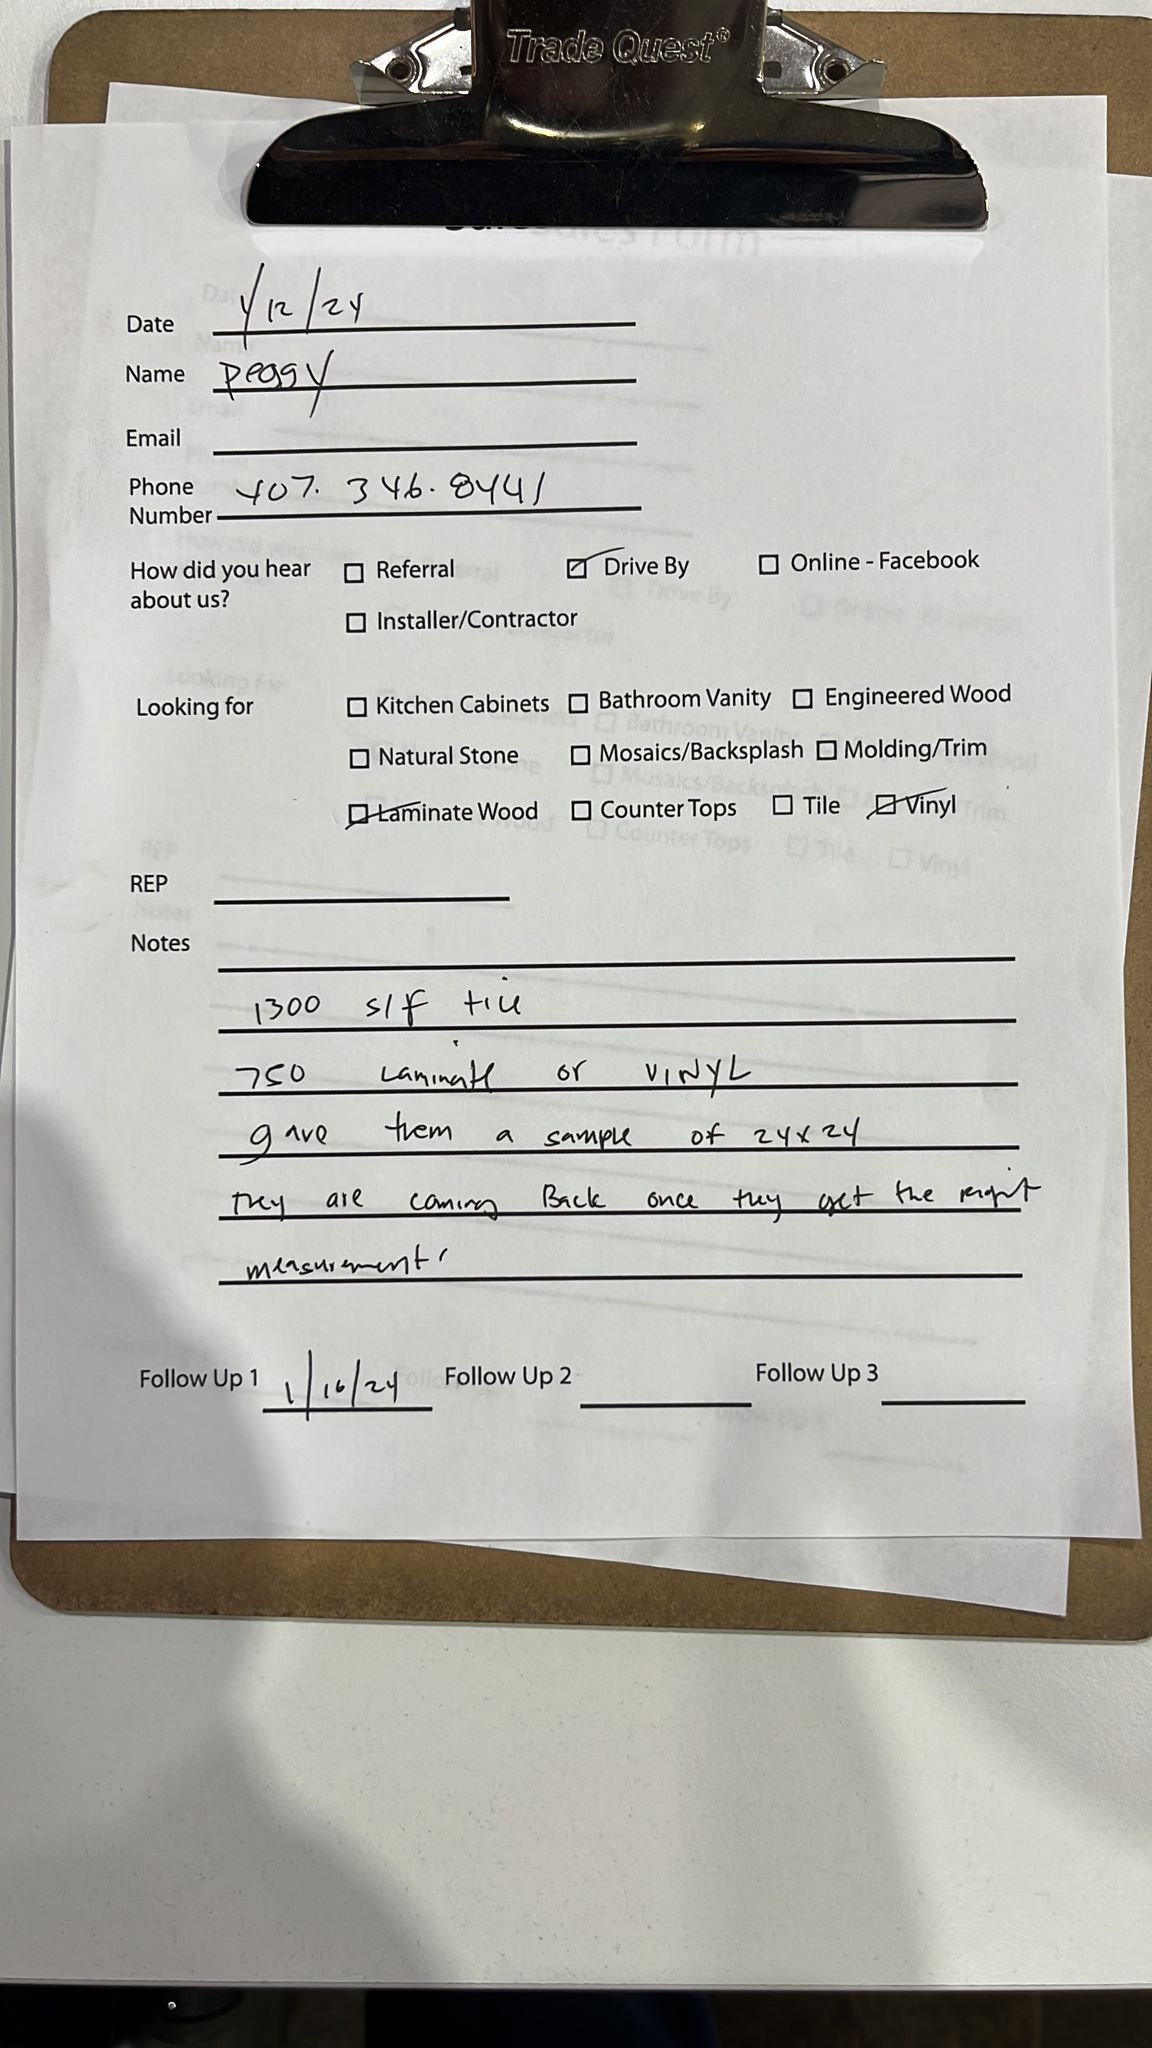 Trade Quest®
Date 1/12/24
Name Peggy
Email
Phone Number 407. 346. 8441
How did you hear about us? Referral Drive By Online - Facebook
Installer/Contractor
Looking for Kitchen Cabinets Bathroom Vanity Engineered Wood
Natural Stone Mosaics/Backsplash Molding/Trim
Laminate Wood Counter Tops Tile Vinyl
REP
Notes
1300 s/f tile
750 Laminate or VINYL
gave them a sample of 24x24
They are coming Back once they get the right
measurements
Follow Up 1 1/16/24 Follow Up 2 Follow Up 3